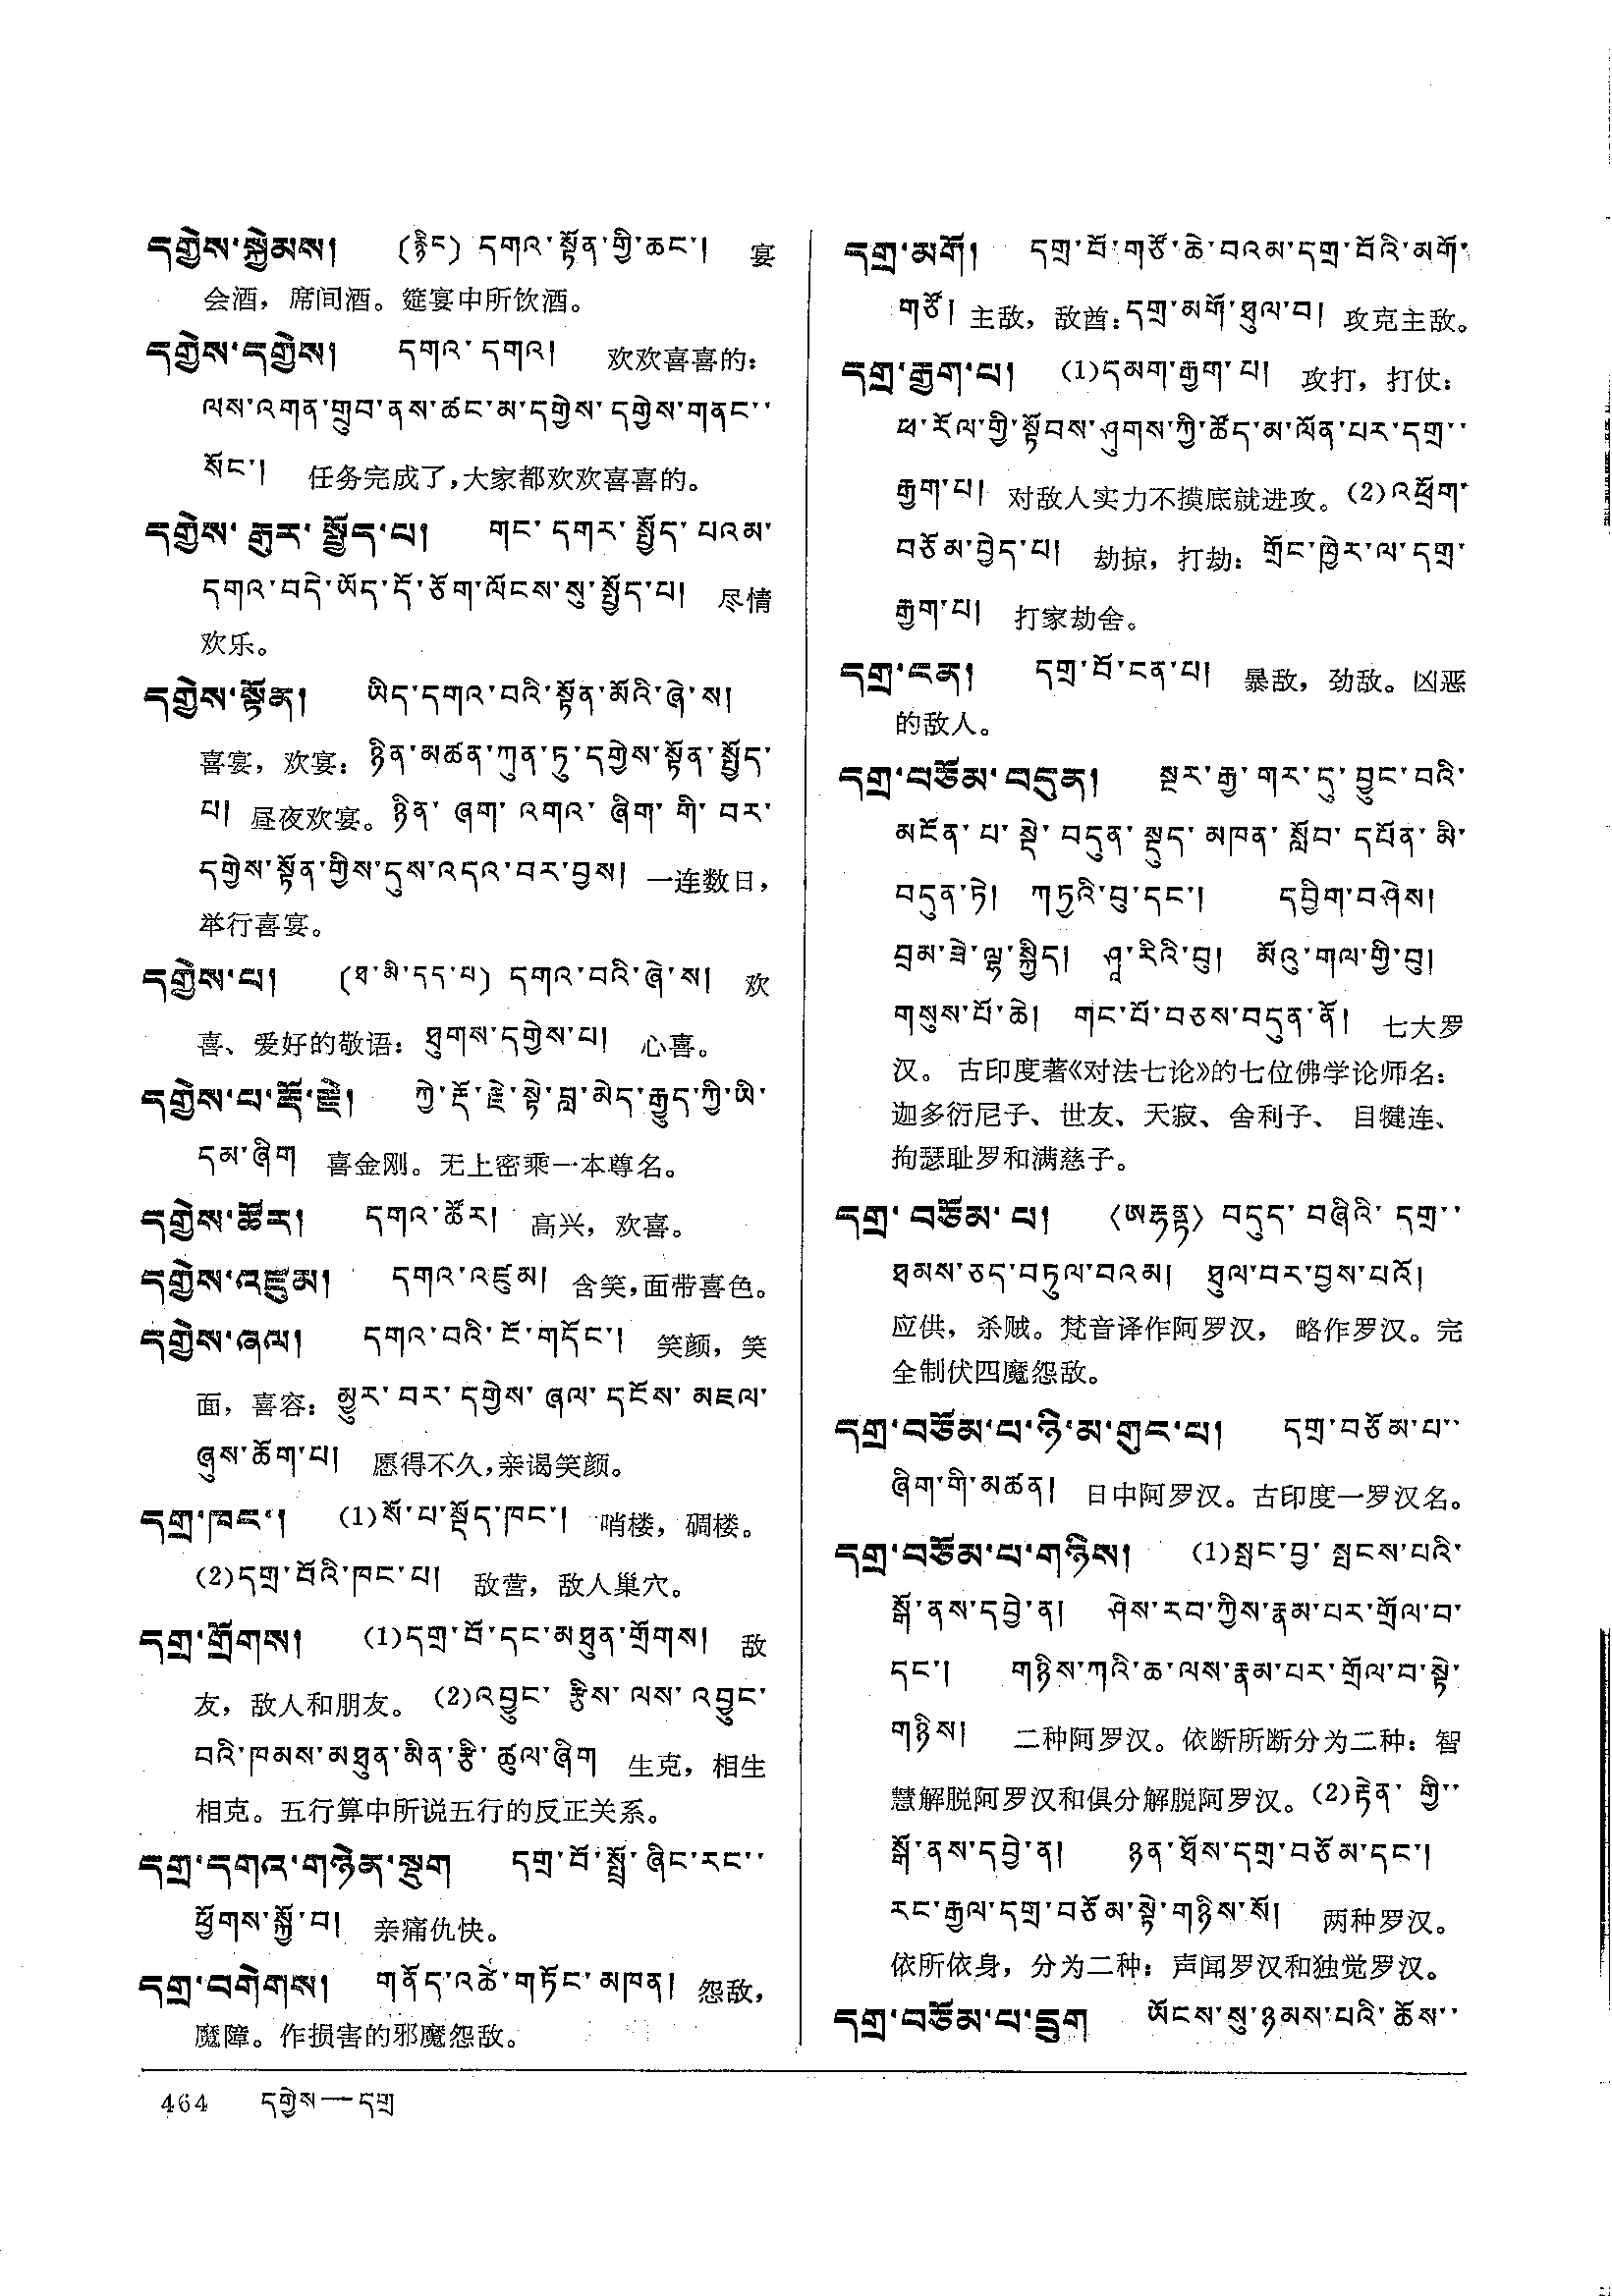 དགྱེས་སྐྱེམས། (རྙིང) དགའ་སྟོན་གྱི་ཆང་། 宴
会酒，席间酒。筵宴中所饮酒。
དགྱེས་དགྱེས། དགའ་དགའ། 欢欢喜喜的：
ལས་འགན་གྲུབ་ནས་ཚང་མ་དགྱེས་དགྱེས་གནང་་
སོང་། 任务完成了，大家都欢欢喜喜的。
དགྱེས་རྒུར་སྤྱོད་པ། གང་དགར་སྤྱོད་པའམ་
དགའ་བདེ་ཡོད་དོ་ཅོག་ལོངས་སུ་སྤྱོད་པ། 尽情
欢乐。
དགྱེས་སྟོན། ཡིད་དགའ་བའི་སྟོན་མོའི་ཞེ་ས།
喜宴，欢宴：ཉིན་མཚན་ཀུན་ཏུ་དགྱེས་སྟོན་སྤྱོད་
པ། 昼夜欢宴。ཉིན་ཞག་འགའ་ཞིག་གི་བར་
དགྱེས་སྟོན་གྱིས་དུས་འདའ་བར་བྱས། 一连数日，
举行喜宴。
དགྱེས་པ། (ཐ་མི་དད་པ) དགའ་བའི་ཞེ་ས། 欢
喜、爱好的敬语：ཐུགས་དགྱེས་པ། 心喜。
དགྱེས་པ་རྡོ་རྗེ། ཀྱེ་རྡོ་རྗེ་སྟེ་བླ་མེད་རྒྱུད་ཀྱི་ཡི་
དམ་ཞིག 喜金刚。无上密乘一本尊名。
དགྱེས་ཚོར། དགའ་ཚོར། 高兴，欢喜。
དགྱེས་འཛུམ། དགའ་འཛུམ། 含笑，面带喜色。
དགྱེས་ཞལ། དགའ་བའི་ངོ་གདོང་། 笑颜，笑
面，喜容：མྱུར་བར་དགྱེས་ཞལ་དངོས་མཇལ་
ཞུས་ཆོག་པ། 愿得不久，亲谒笑颜。
དགྲ་ཁང་། (1)སོ་པ་སྡོད་ཁང་། 哨楼，碉楼。
(2)དགྲ་བོའི་ཁང་པ། 敌营，敌人巢穴。
དགྲ་གྲོགས། (1)དགྲ་བོ་དང་མཐུན་གྲོགས། 敌
友，敌人和朋友。(2)འབྱུང་རྩིས་ལས་འབྱུང་
བའི་ཁམས་མཐུན་མིན་རྩི་ཚུལ་ཞིག 生克，相生
相克。五行算中所说五行的反正关系。
དགྲ་དགའ་གཉེན་སྡུག དགྲ་བོ་སྤྲོ་ཞིང་རང་་
ཕྱོགས་སྐྱོ་བ། 亲痛仇快。
དགྲ་བགེགས། གནོད་འཚེ་གཏོང་མཁན། 怨敌，
魔障。作损害的邪魔怨敌。
དགྲ་མགོ། དགྲ་བོ་གཙོ་ཆེ་བའམ་དགྲ་བོའི་མགོ་
གཙོ། 主敌，敌酋：དགྲ་མགོ་ཐུལ་བ། 攻克主敌。
དགྲ་རྒྱག་པ། (1)དམག་རྒྱག་པ། 攻打，打仗：
ཕ་རོལ་གྱི་སྟོབས་ཤུགས་ཀྱི་ཚོད་མ་ལོན་པར་དགྲ་་
རྒྱག་པ། 对敌人实力不摸底就进攻。(2)འཕྲོག་
བཅོམ་བྱེད་པ། 劫掠，打劫：གྲོང་ཁྱེར་ལ་དགྲ་
རྒྱག་པ། 打家劫舍。
དགྲ་ངན། དགྲ་བོ་ངན་པ། 暴敌，劲敌。凶恶
的敌人。
དགྲ་བཅོམ་བདུན། སྔར་རྒྱ་གར་དུ་བྱུང་བའི་
མངོན་པ་སྡེ་བདུན་སྡུད་མཁན་སློབ་དཔོན་མི་
བདུན་ཏེ། ཀཏྱའི་བུ་དང་། དབྱིག་བཤེས།
བྲམ་ཟེ་ལྷ་སྐྱིད། ཤཱ་རིའི་བུ། མོའུ་གལ་གྱི་བུ།
གསུས་པོ་ཆེ། གང་པོ་བཅས་བདུན་ནོ། 七大罗
汉。古印度著《对法七论》的七位佛学论师名：
迦多衍尼子、世友、天寂、舍利子、目犍连、
拘瑟耻罗和满慈子。
དགྲ་བཅོམ་པ། 〈ཨརྷནྟ〉 བདུད་བཞིའི་དགྲ་་
ཐམས་ཅད་བཏུལ་བའམ། ཐུལ་བར་བྱས་པའོ།
应供，杀贼。梵音译作阿罗汉，略作罗汉。完
全制伏四魔怨敌。
དགྲ་བཅོམ་པ་ཉི་མ་གུང་པ། དགྲ་བཅོམ་པ་་
ཞིག་གི་མཚན། 日中阿罗汉。古印度一罗汉名。
དགྲ་བཅོམ་པ་གཉིས། (1)སྤང་བྱ་སྤངས་པའི་
སྒོ་ནས་དབྱེ་ན། ཤེས་རབ་ཀྱིས་རྣམ་པར་གྲོལ་བ་
དང་། གཉིས་ཀའི་ཆ་ལས་རྣམ་པར་གྲོལ་བ་སྟེ་
གཉིས། 二种阿罗汉。依断所断分为二种：智
慧解脱阿罗汉和俱分解脱阿罗汉。(2)རྟེན་གྱི་་
སྒོ་ནས་དབྱེ་ན། ཉན་ཐོས་དགྲ་བཅོམ་དང་།
རང་རྒྱལ་དགྲ་བཅོམ་སྟེ་གཉིས་སོ། 两种罗汉。
依所依身，分为二种：声闻罗汉和独觉罗汉。
དགྲ་བཅོམ་པ་དྲུག ཡོངས་སུ་ཉམས་པའི་ཆོས་་
464 དགྱེས—དགྲ